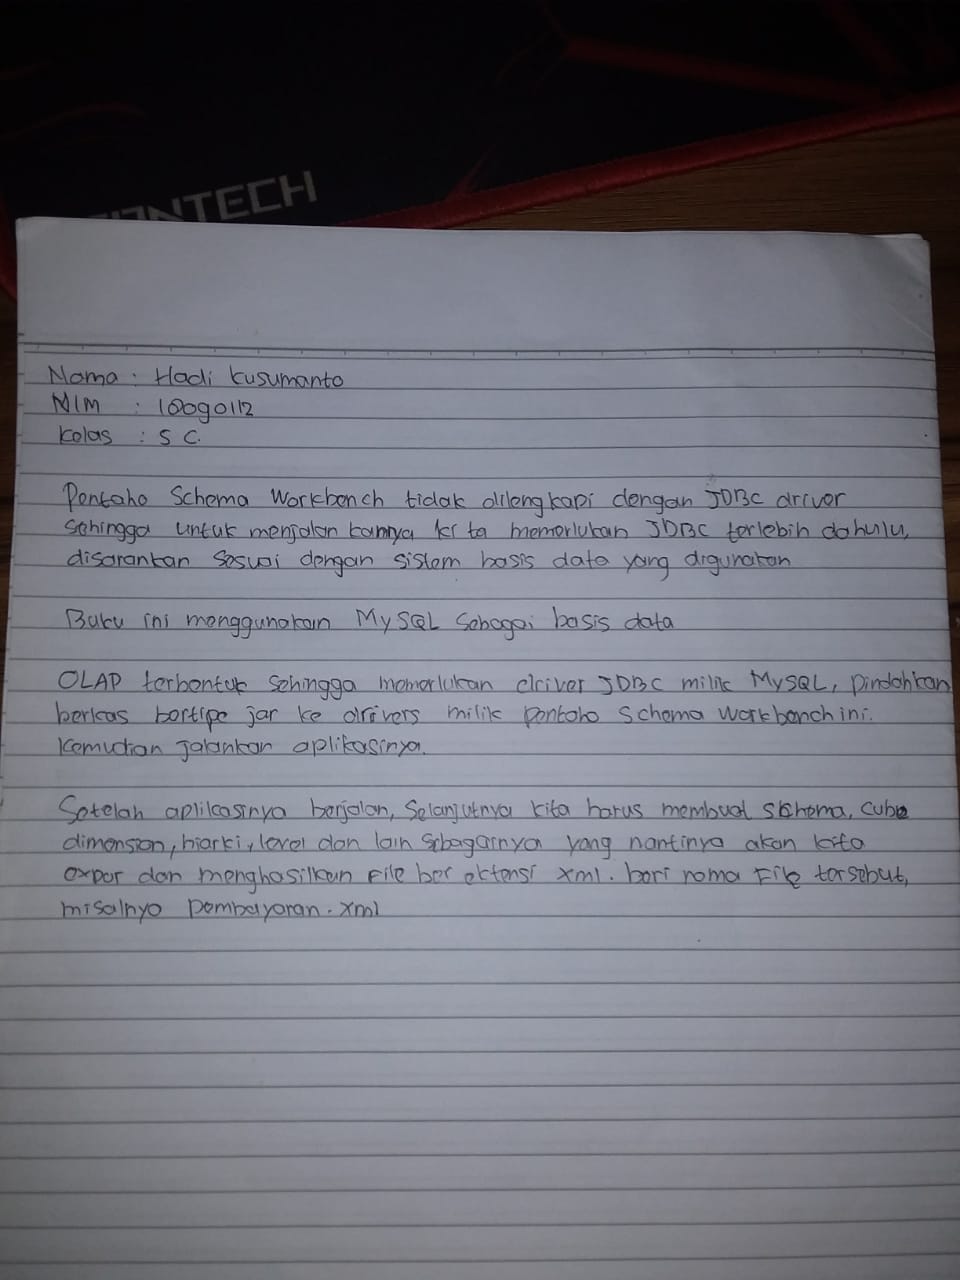 NTECH
Nama : Hadi Kusumanto
NIM : 18090112
Kelas : 5 C.
Pentaho Schema Workbench tidak dilengkapi dengan JDBC driver
sehingga untuk menjalan kannya ki ta memerlukan JDBC terlebih dahulu,
disarankan sesuai dengan sistem basis data yang digunakan
Buku ini menggunakan MySQL sebagai basis data
OLAP terbentuk sehingga memerlukan driver JDBC milik MySQL, pindahkan
berkas bertipe jar ke drivers milik pentaho Schema workbench ini.
Kemudian jalankan aplikasinya.
Setelah aplikasinya berjalan, Selanjutnya kita harus membuat Skhema, Cube
dimension, hiarki, level dan lain Sebagainya yang nantinya akan kita
expor dan menghasilkan File ber ektensi xml. beri nama File tersebut,
misalnya pembayaran.xml